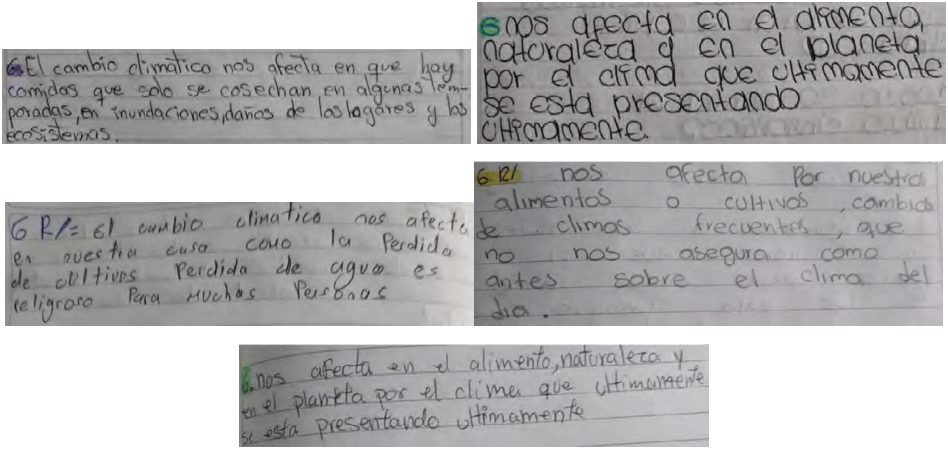 6. El cambio climático nos afecta en que hay
comidas que solo se cosechan en algunas tem-
poradas, en inundaciones, daños de los lagares y los
ecosistemas.
6 nos afecta en el alimento,
naturaleza y en el planeta
por el clima que ultimamente
se esta presentando
ultimamente.
6 R/= el cambio climatico nos afecta
en nuestra casa como la Perdida
de cultivos Perdida de agua es
peligroso Para muchas Personas
6. R/ nos afecta Por nuestros
alimentos o cultivos, cambios
de climas frecuentes, que
no nos asegura como
antes sobre el clima del
dia.
6. nos afecta en el alimento, naturaleza y
en el planeta por el clima que ultimamente
se esta presentando ultimamente